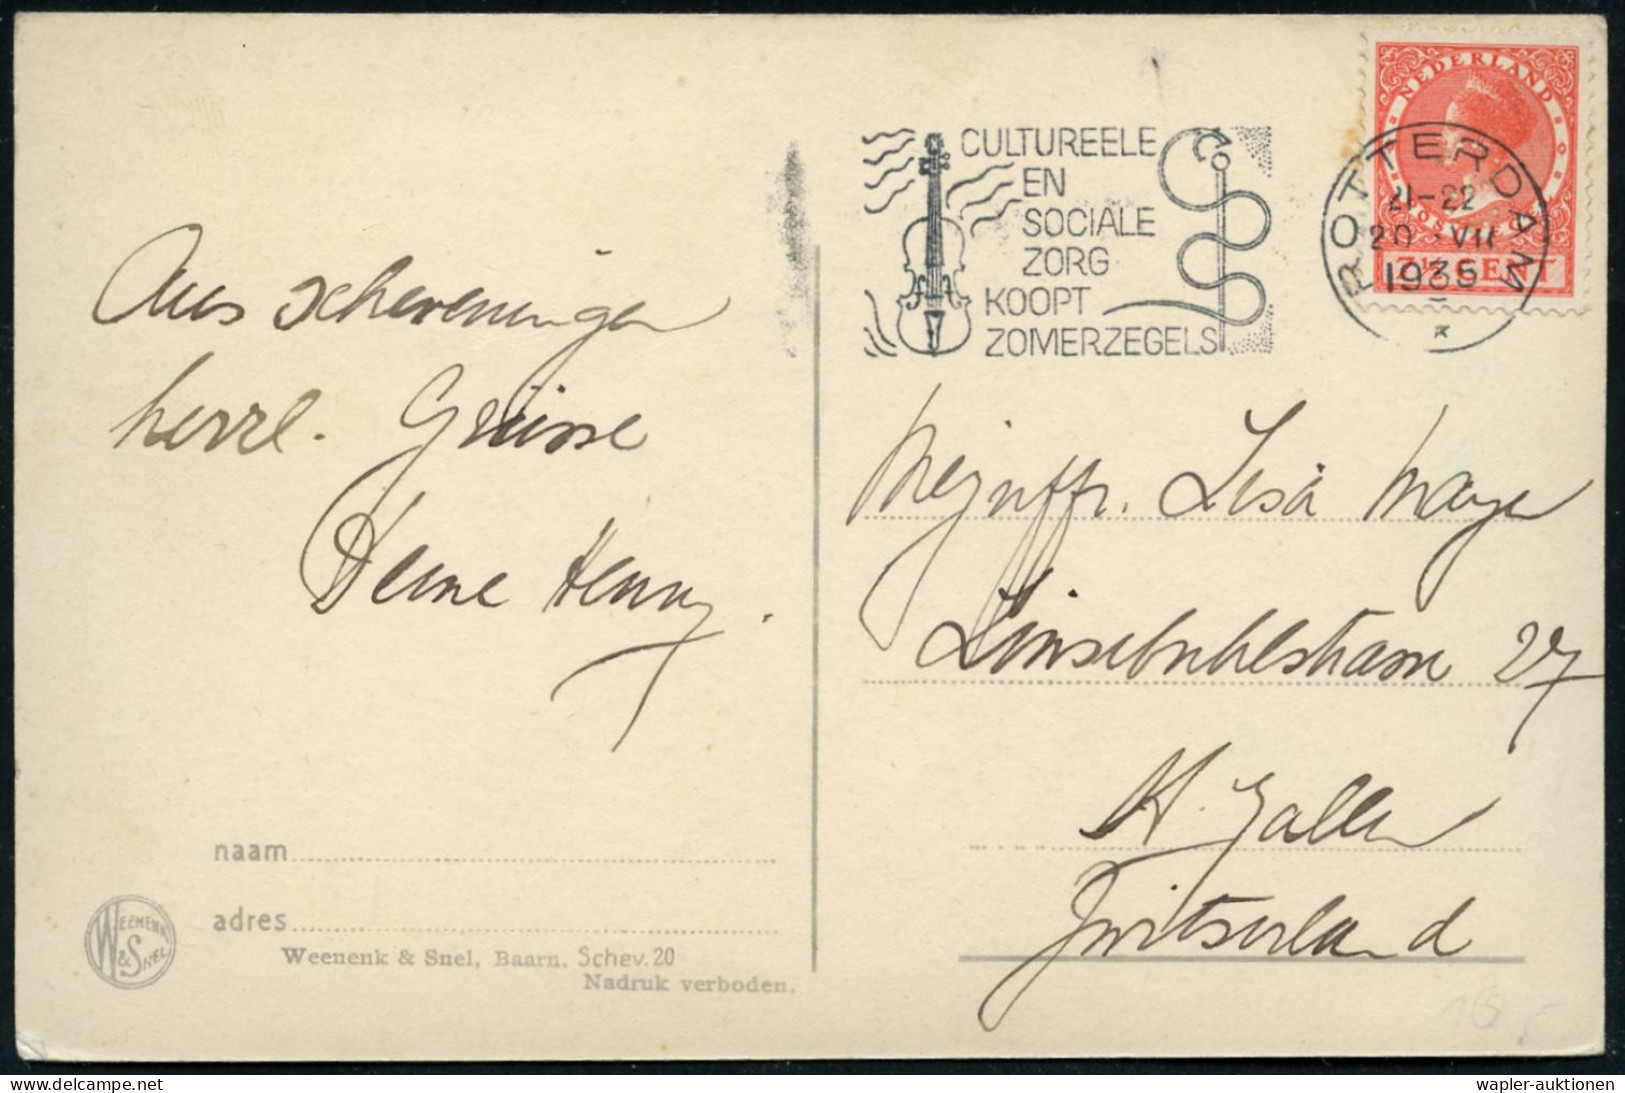 CULTUREELE
EN
SOCIALE
ZORG
KOOPT
ZOMERZEGELS
NEDERLAND
7½ CENT
ROTTERDAM
21-22
20 VII
1935
Aus Scheveningen
herzl. Grüsse
Deine Henny.
Mejuffr. Lisa Mayer
Linsebühlstrasse 27
St. Gallen
Zwitserland
naam
adres
WEENENK
& SNEL
Weenenk & Snel, Baarn. Schev. 20
Nadruk verboden.
delcampe.net
wapler-auktionen